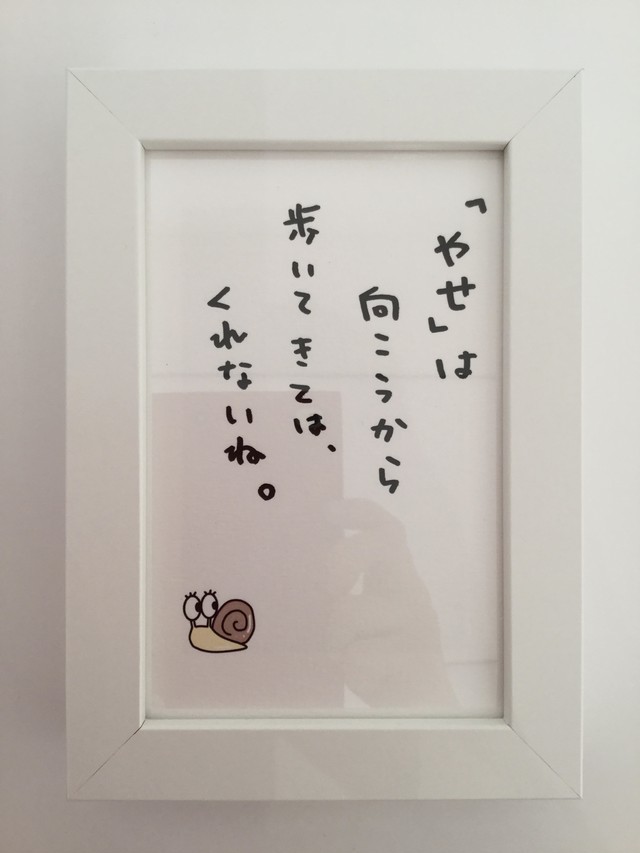 「やせ」は
向こうから
歩いてきては、
くれないね。